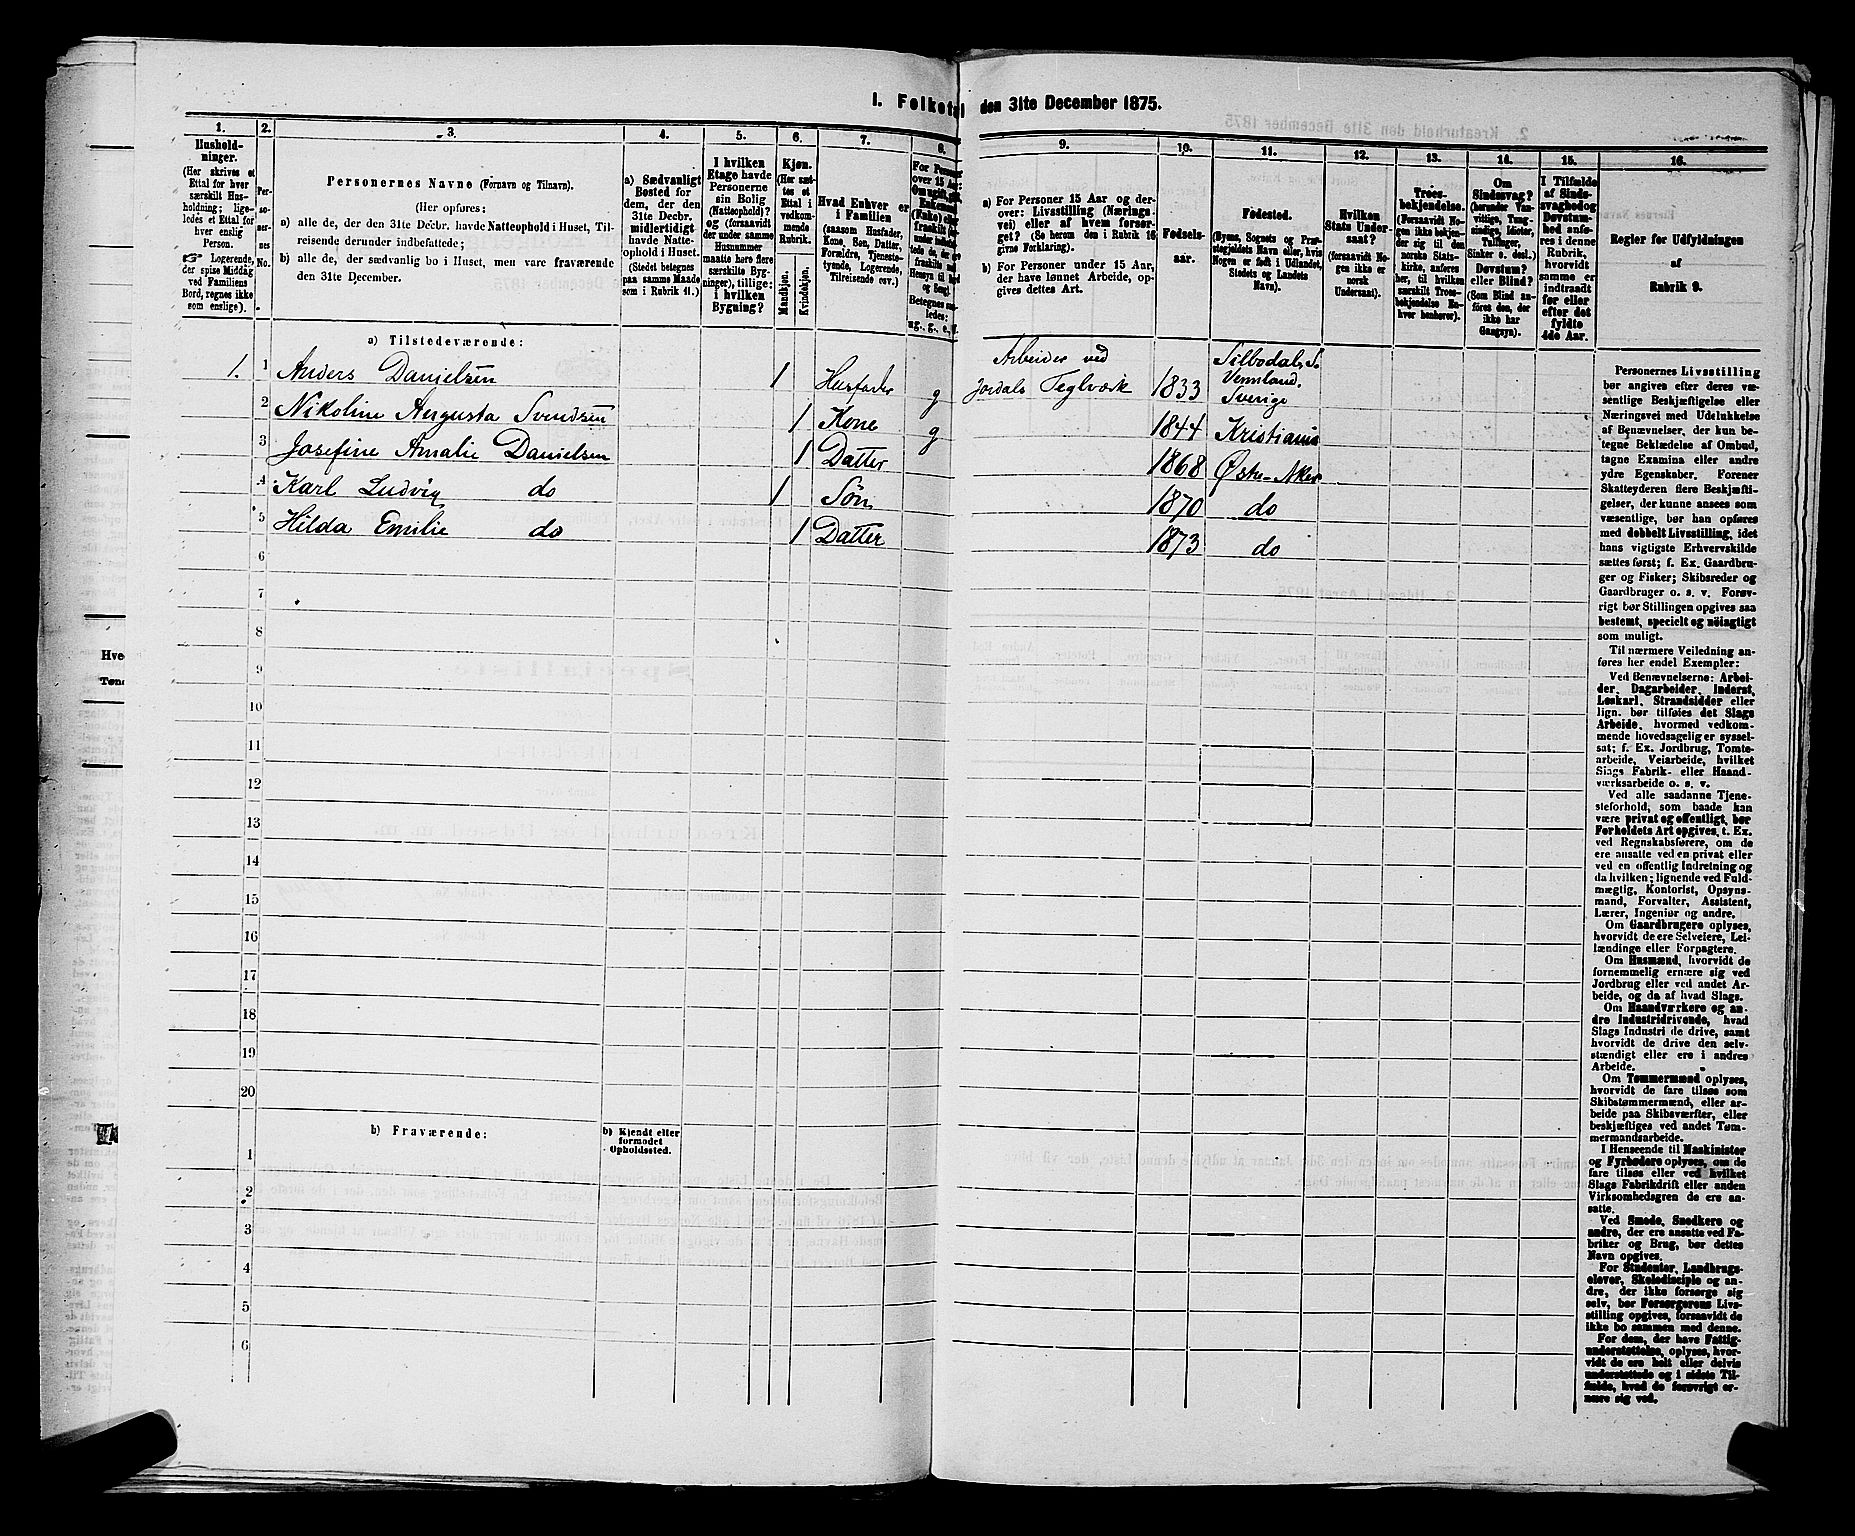 I. Folketal den 31te December 1875.
1.
2.
3.
4.
5.
6.
7.
8.
9.
10.
11.
12.
13.
14.
15.
16.
Husholdninger.
(Her skrives et
Ettal for hver
særskilt Husholdning;
ligeledes et Ettal for
hver enslig
Person.
Logerende,
der spise Middag
ved Familiens
Bord, regnes ikke
som enslige).
Personernes No.
Personernes Navne (Fornavn og Tilnavn).
(Her opføres:
a) alle de, der den 31te Decbr. havde Natteophold i Huset, Tilreisende derunder indbefattede;
b) alle de, der sædvanlig bo i Huset, men vare fraværende
den 31te December.
a) Sædvanligt
Bosted for
dem, der den
31te Decbr.
midlertidigt
havde Natteophold i Huset.
(Stedet betegnes
paa samme Maade
som i Rubrik 11.)
I hvilken
Etage havde
Personerne
sin Bolig
(Natteophold)?
og (forsaavidt
der under samme
Husnummer
maatte høre flere
særskilte Bygninger), tillige:
i hvilken
Bygning?
Kjøn.
(Her sættes et
Ettal i
vedkommende
Rubrik.
Mandkjøn.
Kvindekjøn.
Hvad Enhver er
i Familien
(saasom Husfader,
Kone, Søn, Datter,
Forældre, Tjenestetyende, Logerende,
Tilreisende osv.)
a) For Personer 15 Aar og derover: Livsstilling (Næringsvei) eller af hvem forsørget? (Se herom den i Rubrik 16
givne Forklaring).
b) For Personer under 15 Aar,
der have lønnet Arbeide, opgives dettes Art.
Fødselsaar.
Fødested.
(Byens, Sognets og Præstegjeldets Navn eller, hvis
Nogen er født i Udlandet,
Stedets og Landets
Navn).
Hvilken
Stats Undersaat?
(forsaavidt Nogen ikke er
norsk
Undersaat).
Troesbekjendelse.
(Forsaavidt Nogen ikke bekjender sig til den
norske Statskirke, anføres
her, til hvilken
særskilt Troesbekjendelse Enhver henhører).
Om
Sindssvag?
(herunder Vanvittige, Tungsindige, Idioter,
Tullinger,
Sinker o. desl.)
Døvstum?
eller Blind?
(Som Blind anføres den, der
ikke har
Gangsyn).
I Tilfælde
af Sindssvaghed og
Døvstumhed anføres i denne
Rubrik,
hvorvidt
samme er
indtraadt
før eller
efter det
fyldte
4de Aar.
Regler for Udfyldningen
af
Rubrik 9.
a) Tilstedeværende:
1. 1 Anders Danielsen 1 Husfader g Arbeider ved Jordals Teglværk 1833 Silbodal, S. Vermland. Sverige
2 Nikoline Augusta Svendsen 1 Kone g 1844 Kristiania
3 Josefine Amalie Danielsen 1 Datter 1868 Østre-Aker
4 Karl Ludvig do 1 Søn 1870 do
5 Hilda Emilie do 1 Datter 1873 do
6
7
8
9
10
11
12
13
14
15
16
17
18
19
20
b) Fraværende:
b) Kjendt eller
formodet
Opholdssted.
1
2
3
4
5
6
Personernes Livsstilling
bør angives efter deres væsentlige Beskjæftigelse eller
Næringsvei med Udelukkelse
af Benævnelser, der kun betegne Beklædelse af Ombud,
tagne Examina eller andre
ydre Egenskaber. Forener
Skatteyderen flere Beskjæftigelser, der kunne ansees som
væsentlige, bør han opføres
med dobbelt Livsstilling, idet
hans vigtigste Erhvervskilde
sættes først; f. Ex. Gaardbruger og Fisker; Skibsreder og
Gaardbruger o. s. v. Forøvrigt bør Stillingen opgives saa
bestemt, specielt og nøiagtigt
som muligt.
Til nærmere Veiledning anføres her endel Exempler:
Ved Benævnelserne: Arbeider, Dagarbeider, Inderst,
Løskarl, Strandsidder eller
lign. bør tilføies det Slags
Arbeide, hvormed vedkommende hovedsagelig er sysselsat; f. Ex. Jordbrug, Tomtearbeide, Veiarbeide, hvilket
Slags Fabrik- eller Haandværksarbeide o. s. v.
Ved alle saadanne Tjenesteforhold, som baade kan
være privat og offentligt, bør
Forholdets Art opgives, t. Ex.
ved Regnskabsførere, om de
ere ansatte ved en privat eller
ved en offentlig Indretning og
da hvilken; lignende ved Fuldmægtig, Kontorist, Opsynsmand, Forvalter, Assistent,
Lærer, Ingeniør og andre.
Om Gaardbrugere oplyses,
hvorvidt de ere Selveiere, Leilændinge eller Forpagtere.
Om Husmænd, hvorvidt de
fornemmelig ernære sig ved
Jordbrug eller ved andet Arbeide, og da af hvad Slags.
Om Haandværkere og andre Industridrivende, hvad
Slags Industri de drive, samt
hvorvidt de drive den selvstændigt eller ere i andres
Arbeide.
Om Tømmermænd oplyses,
hvorvidt de fare tilsøs som
Skibstømmermænd, eller arbeide paa Skibsværfter, eller
beskjæftiges ved andet Tømmermandsarbeide.
I Henseende til Maskinister
og Fyrbødere oplyses, om de
fare tilsøs eller ved hvilket
Slags Fabrikdrift eller anden
Virksomhedsgren de ere ansatte.
Ved Smede, Snedkere og
andre, der ere ansatte ved Fabriker og Brug, bør dettes
Navn opgives.
For Studenter, Landbrugselever, Skoledisciple og andre, der ikke forsørge sig
selv, bør Forsørgerens Livsstilling opgives, forsaavidt de
ikke bo sammen med denne.
For dem, der have Fattigunderstøttelse, oplyses, hvorvidt de ere helt eller delvis
understøttede og i sidste Tilfælde, hvad de forøvrigt ernære sig ved.